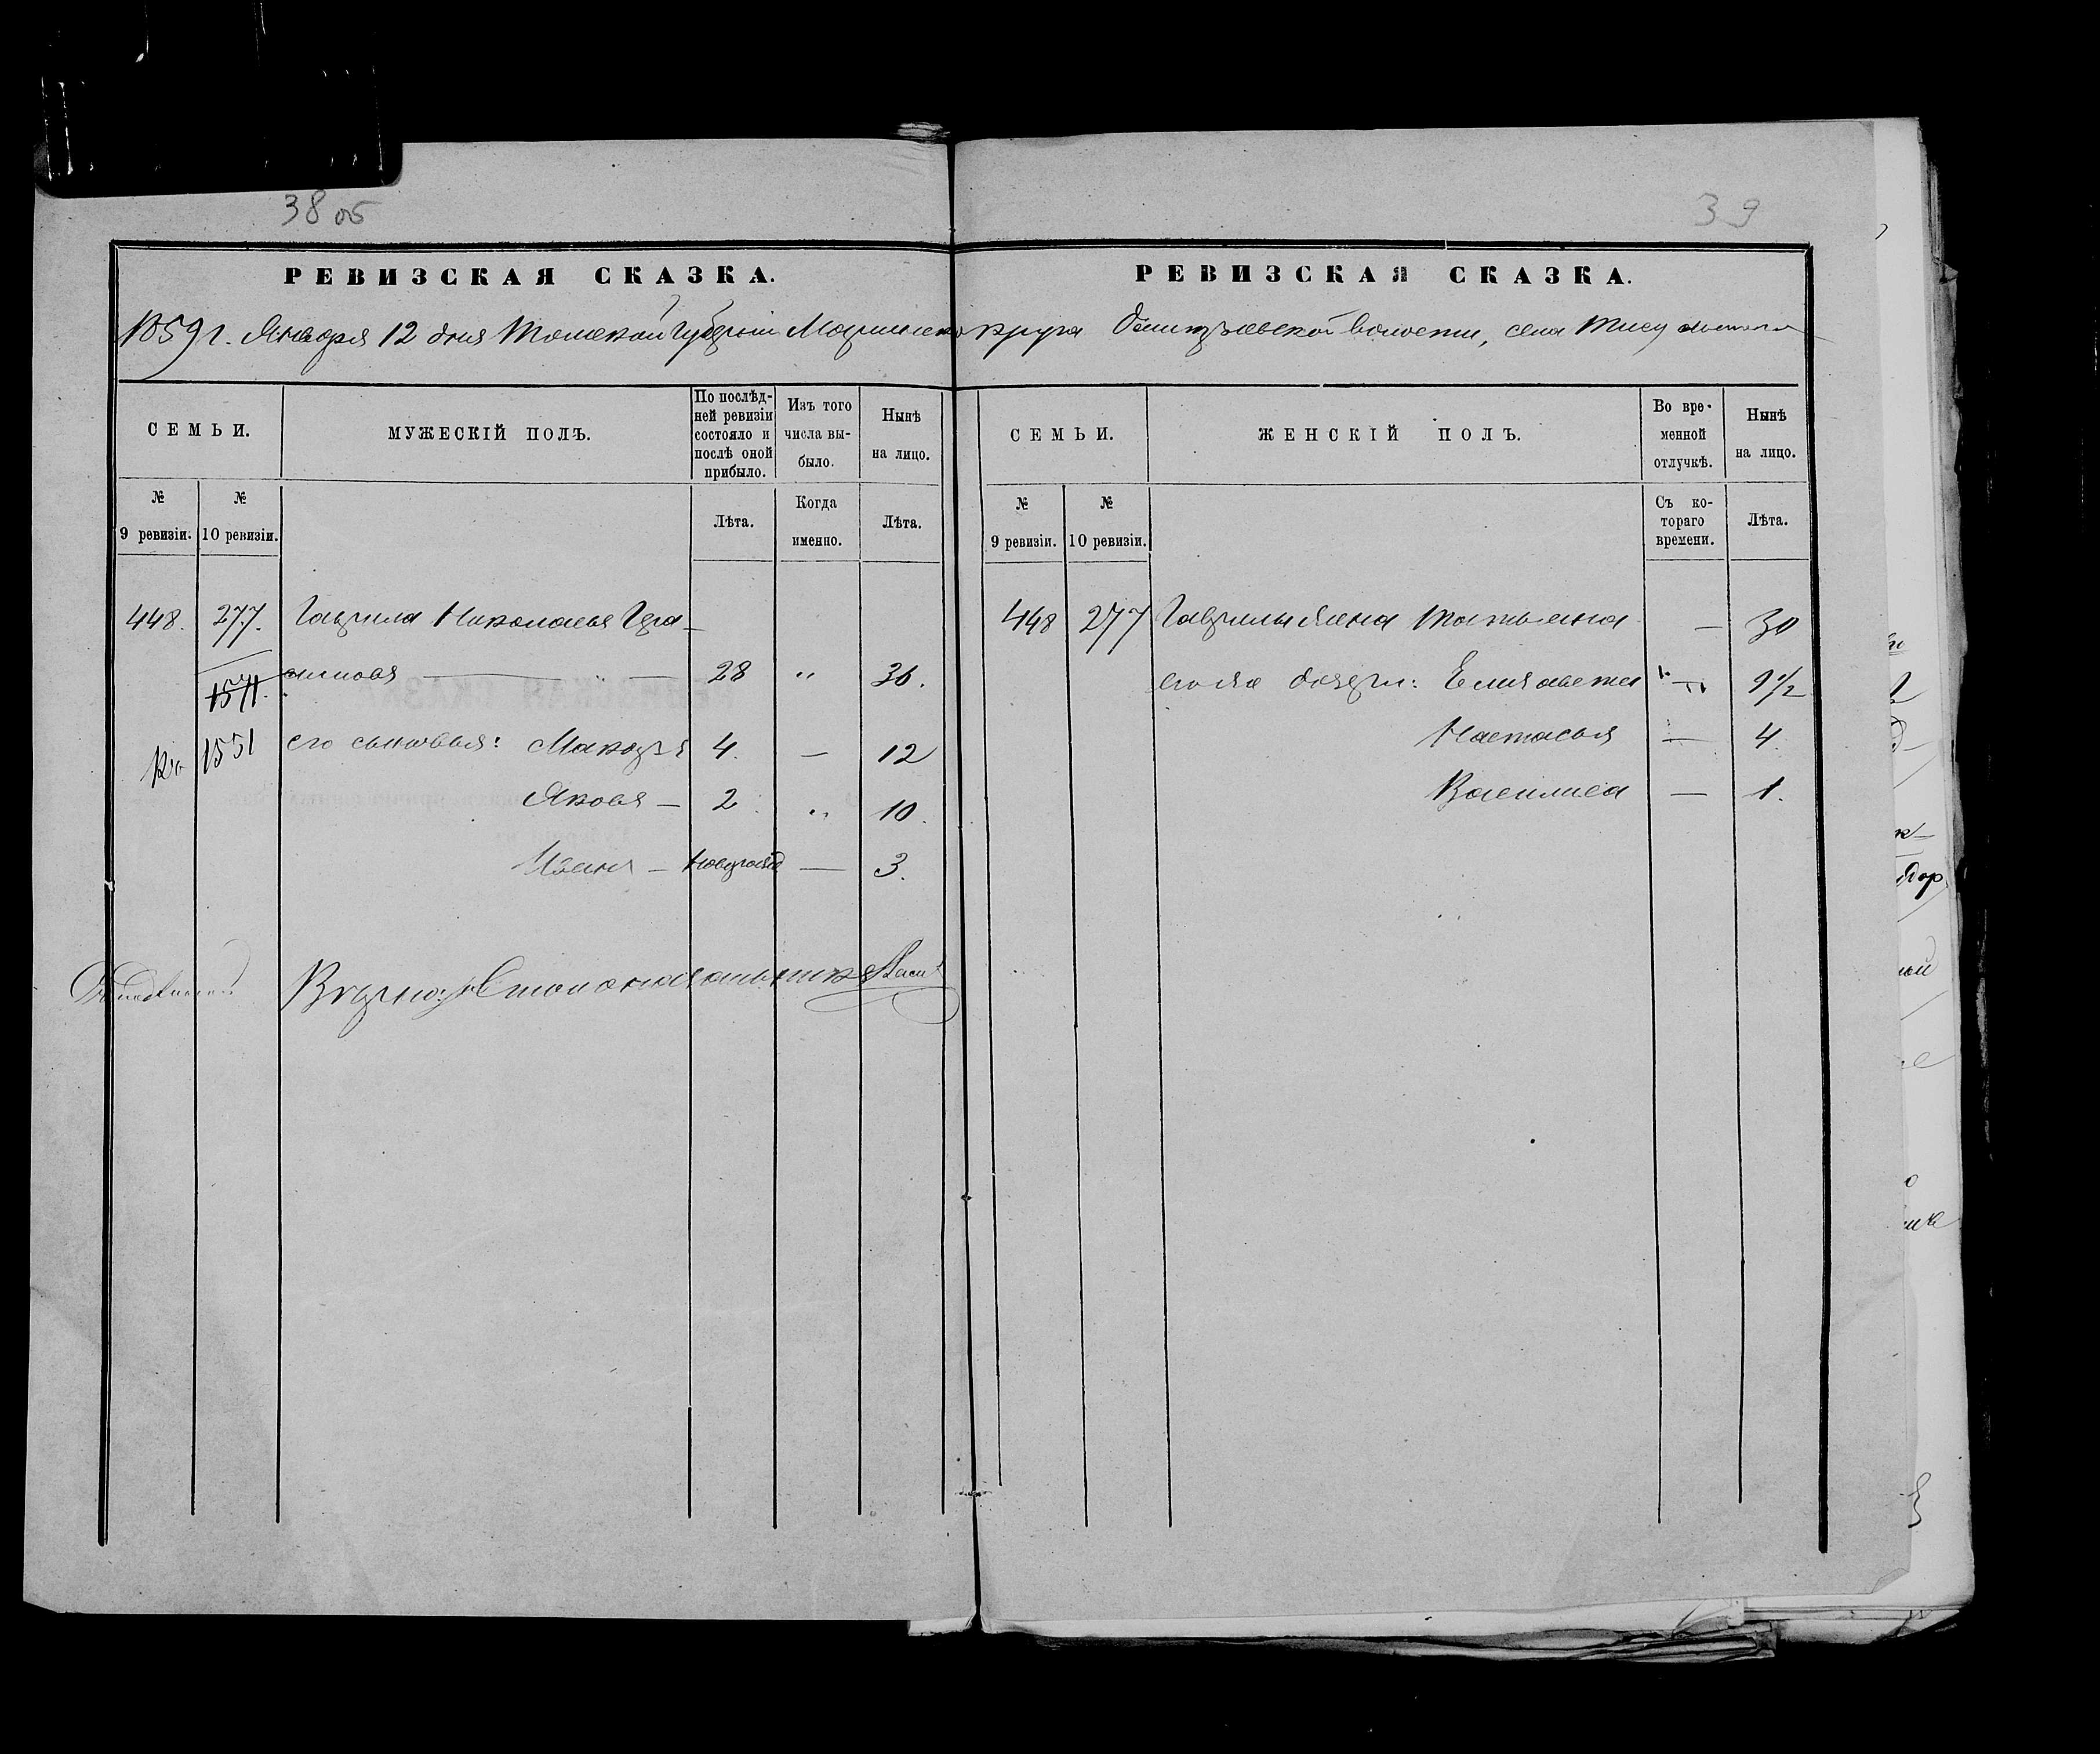 38 об
РЕВИЗСКАЯ СКАЗКА.
1859 г. Января 12 дня Томской Губерніи Маріинскаго
СЕМЬИ.
МУЖЕСКІЙ ПОЛЪ.
По послѣд-
ней ревизіи
состояло и
послѣ оной
прибыло.
Изъ того
числа вы-
было.
Нынѣ
на лицо.
№
9 ревизіи.
№
10 ревизіи.
Лѣта.
Когда
именно.
Лѣта.
448. 277. Гаврила Николаевъ Гера-
симовъ — " — 28 " 36.
1571.
1551 его сыновья: Макаръ 4. — 12
Яковъ — 2 " 10.
Иванъ — новорожд — 3.
39
РЕВИЗСКАЯ СКАЗКА.
округа волости, села
СЕМЬИ.
ЖЕНСКІЙ ПОЛЪ.
Во вре-
менной
отлучкѣ.
Нынѣ
на лицо.
№
9 ревизіи.
№
10 ревизіи.
Съ ко-
тораго
времени.
Лѣта.
448 277 Гаврилы жена Татьяна — 30
его дочери: Елизавета " 9 1/2
Настасья — 4.
Василиса — 1.